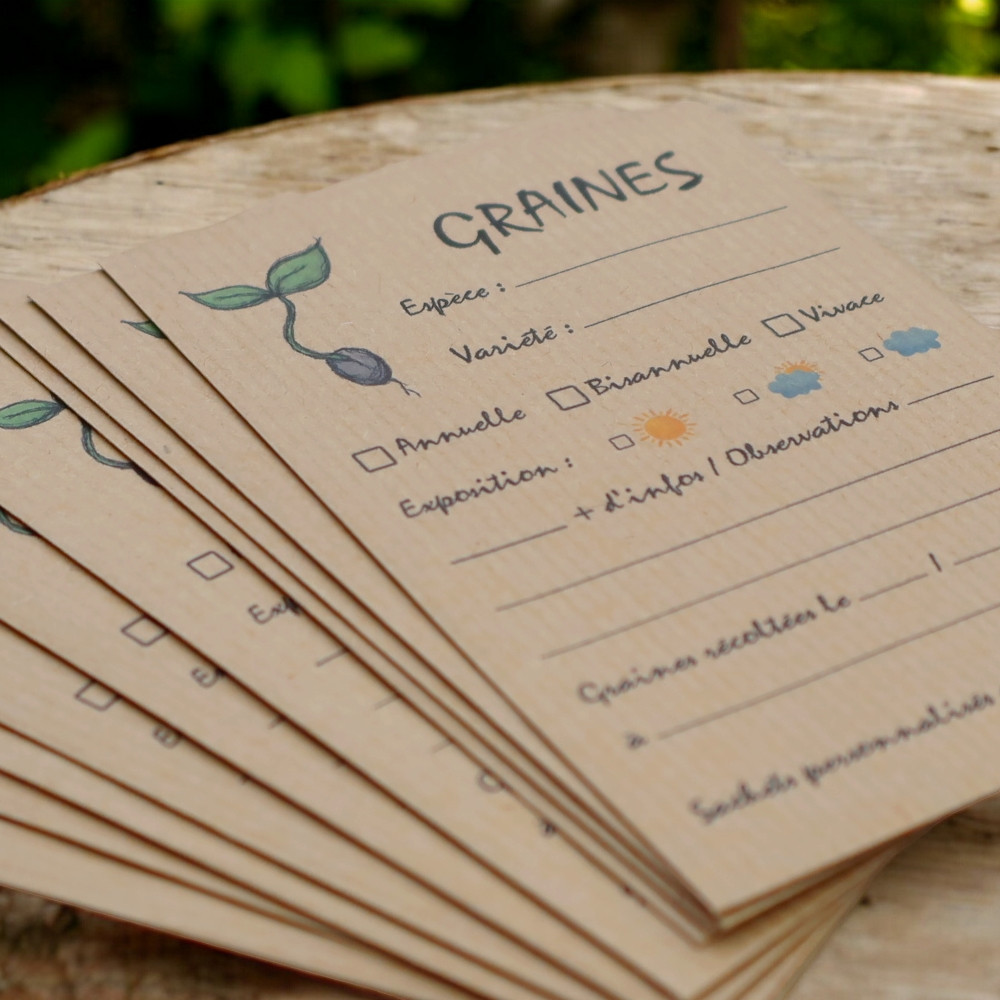 GRAINES
Espèce :
Variété :
Annuelle Bisannuelle Vivace
Exposition :
+ d'infos / Observations
Graines récoltées le /
à
Sachets personnalisés
Exp